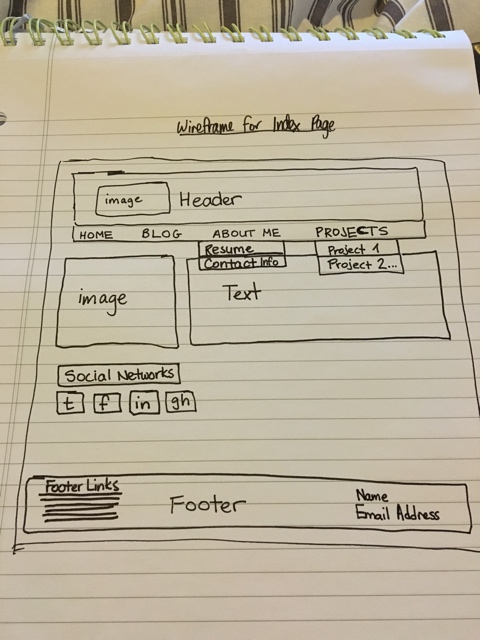 Wireframe for Index Page
image Header
HOME BLOG ABOUT ME PROJECTS
Resume
Contact Info
Project 1
Project 2...
image
Text
Social Networks
t f in gh
Footer Links
Footer
Name
Email Address